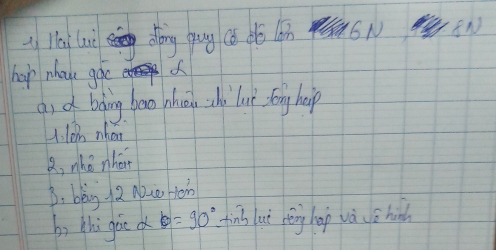 1, Hai lực đồng quy có độ lớn 6N, 8N
hợp nhau góc α
a, α bằng bao nhiêu thì lực tổng hợp
1. lớn nhất
2, nhỏ nhất
3. bằng 12 Niu-tơn
b, khi góc α = 90° tính lực tổng hợp và vẽ hình